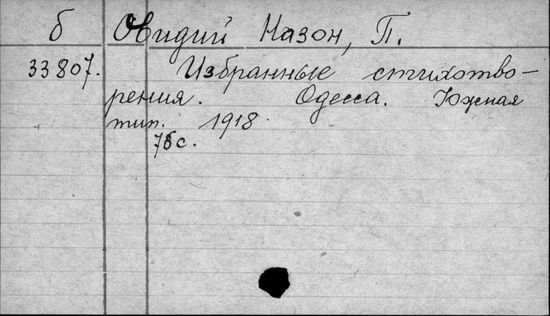 б Овидий Назон, П.
33807. Избранные стихотво-
рения. Одесса. Южная
тип. 1918.
78 с.